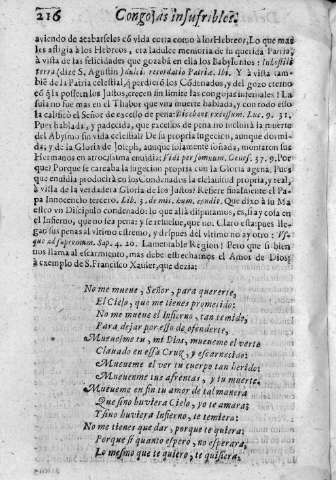 216 Congojas insufribles.
aviendo de acabarseles cõ vida corta como à los Hebreos, Lo que mas
les afligia à los Hebreos, era la dulce memoria de su querida Patria,
à vista de las felicidades que gozabã en ella los Babylonios:
(dize S. Agustin) dulcis recordatio Patriæ. Ibi. Y à vista tam-
biẽ de la Patria celestial, q̃ perdierõ los Cõdenados, y del gozo eterno
cõ q̃ la posseen los Justos, crecen sin limite las congojas infernales! La
sola no fue mas en el Thabor que vna muerte hablada, y con todo esso
la calificò el Señor de excesso de pena: Dicebant excessum. Luc. 9. 31.
Pues hablada, y padecida, que excessos de pena no inclinirà la muerte
del Abysmo su vida celestial? De la propria sugecion, aunque dormi-
da, y de la Gloria de Joseph, aunque solamente soñada, montaron sus
Hermanos en atrocissima enuidia: Vidi per somnum. Genes. 37. 9. Por
que? Porque se careaba la sugecion propria con la Gloria agena. Pues
que enuidia produzirà en los Condenados la esclauitud propria, y real,
à vista de la verdadera Gloria de los Justos? Refiere finalmente el Pa-
pa Innocencio tercero. Lib. 3. de mis. hum. condit. Que dixo à su Ma-
estro vn Discipulo condenado: lo que allà disputamos, es, si ay cosa en
el Infierno, que no sea pena: y se resuelue, que no. Claro està pues lle-
gas sus penas al vltimo estremo, y despues del vltimo no ay otro: Vs-
que ad supremum. Sap. 4. 20. Lamentable Region! Pero que si bien
nos llama al escarmiento, mas debe estrecharnos el Amos de Dios,
à exemplo de S. Francisco Xauier, que dezia:
No me mueue, Señor, para quererte,
El Cielo, que me tienes prometido:
No me mueue el Infierno, tan temido,
Para dejar por esso de ofenderte,
Mueuesme tu, mi Dios, mueueme el verte
Clauado en essa Cruz, y escarnecido:
Mueueme el ver tu cuerpo tan herido:
Mueuenme tus afrentas, y tu muerte.
Mueueme en fin tu amor de tal manera
Que sino huviera Cielo, yo te amara;
Y sino huviera Infierno, te temiera:
No me tienes que dar, porque te quiera;
Porque si quanto espero, no esperara,
Lo mesmo que te quiero, te quisiera.